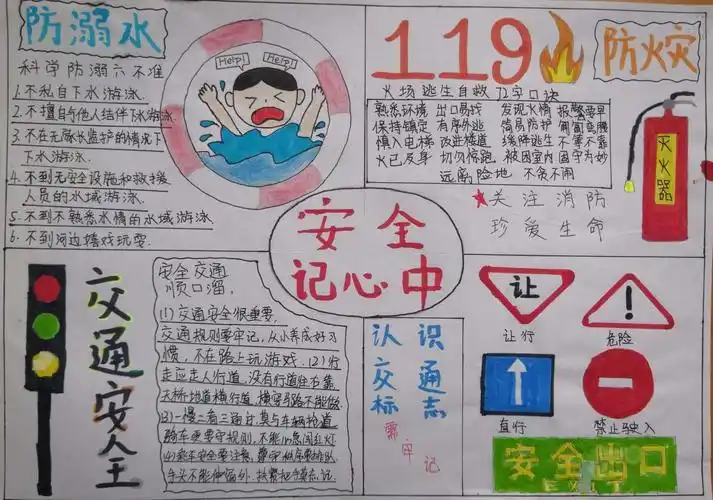 防溺水
科学防溺六不准
1.不私自下水游泳.
2.不擅自与他人结伴下水游泳.
3.不在无家长监护的情况下
下水游泳.
4.不到无安全设施和救援
人员的水域游泳
5.不到不熟悉水情的水域游泳
6.不到河边嬉戏玩耍.
Help! Help!
119
防火灾
火场逃生自救 口诀
熟悉环境 出口易找 发现火情 报警要早
保持镇定 有序外逃 简易防护 匍匐
慎入电梯 改进楼道 缓降逃生 不等不靠
火已及身 切勿惊跑 被困室内 固守为妙
远离险地 不贪不闹
灭火器
★关注消防
珍爱生命
安全
记心中
交通安全
安全交通
顺口溜.
(1)交通安全很重要,
交通规则要牢记,从小养成好习
惯,不在路上玩游戏.(2)行
走应走人行道,没有行道往右靠
天桥地道横行道,横穿马路不能做.
(3)一慢二看三通过,莫与车辆抢道
骑车更要守规则,不能心急闯红灯
(4)乘车安全要注意,遵守秩序要排队.
手头不能伸窗外,扶紧把手莫忘记.
认识
交通
标志
需牢记
让
让行
!
危险
直行
禁止驶入
安全出口
EXIT